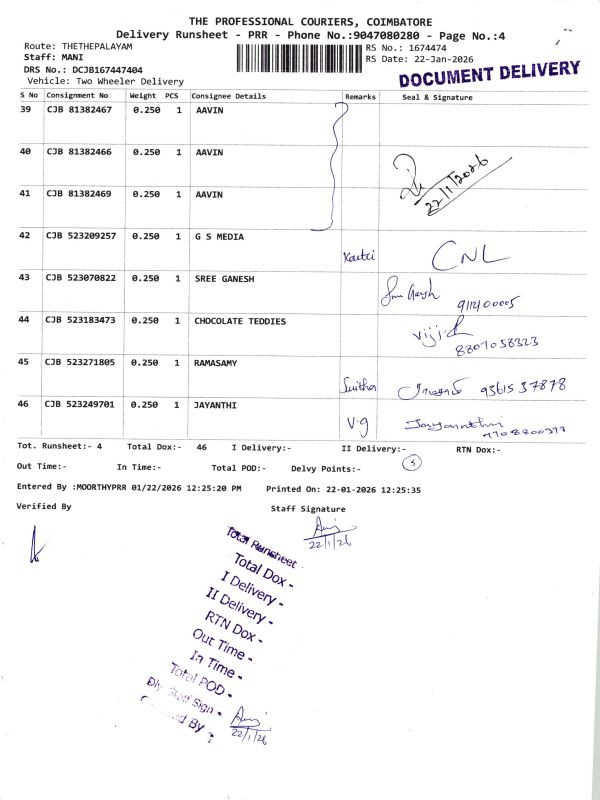 THE PROFESSIONAL COURIERS, COIMBATORE
Delivery Runsheet - PRR - Phone No.:9047080280 - Page No.:4
Route: THETHEPALAYAM
RS No.: 1674474
Staff: MANI
RS Date: 22-Jan-2026
DRS No.: DCJB167447404
Vehicle: Two Wheeler Delivery
DOCUMENT DELIVERY
S No Consignment No Weight PCS Consignee Details Remarks Seal & Signature
39 CJB 81382467 0.250 1 AAVIN
40 CJB 81382466 0.250 1 AAVIN
22/1/2026
41 CJB 81382469 0.250 1 AAVIN
42 CJB 523209257 0.250 1 G S MEDIA
CNL
43 CJB 523070822 0.250 1 SREE GANESH
44 CJB 523183473 0.250 1 CHOCOLATE TEDDIES
45 CJB 523271805 0.250 1 RAMASAMY
93615 37878
46 CJB 523249701 0.250 1 JAYANTHI
V.g
Tot. Runsheet:- 4 Total Dox:- 46 I Delivery:- II Delivery:- RTN Dox:-
5
Out Time:- In Time:- Total POD:- Delvy Points:-
Entered By :MOORTHYPRR 01/22/2026 12:25:20 PM Printed On: 22-01-2026 12:25:35
Verified By Staff Signature
22/1/26
Total Runsheet
Total Dox -
I Delivery -
II Delivery -
RTN Dox -
Out Time -
In Time -
Total POD -
Sign -
By -
22/1/26